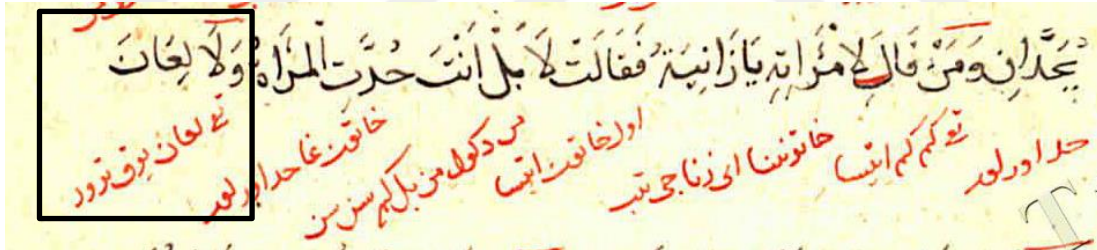 يُحَدَّانِ وَمَنْ قَالَ لِامْرَأَتِهِ يَا زَانِيَةُ فَقَالَتْ لَا بَلْ اَنْتَ حُدَّتِ الْمَرْأَةُ وَلَا لِعَانَ
حد اورلور كم كم ايتسا خاتونينا ای زناجی تيب اول خاتون ايتسا من دكول من بل كم سن سن خاتون غا حد اورلور لعان يوق ترور